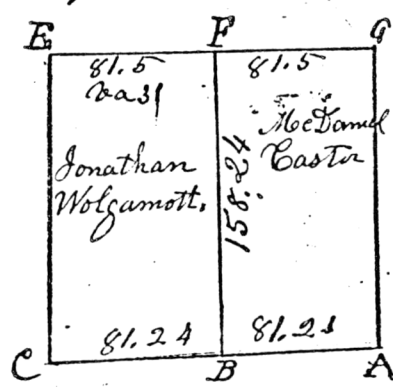 E F G
81.5 81.5
va 31
McDaniel
Castor
Jonathan
Wolgamott.
158.24
81.24 81.21
C B A